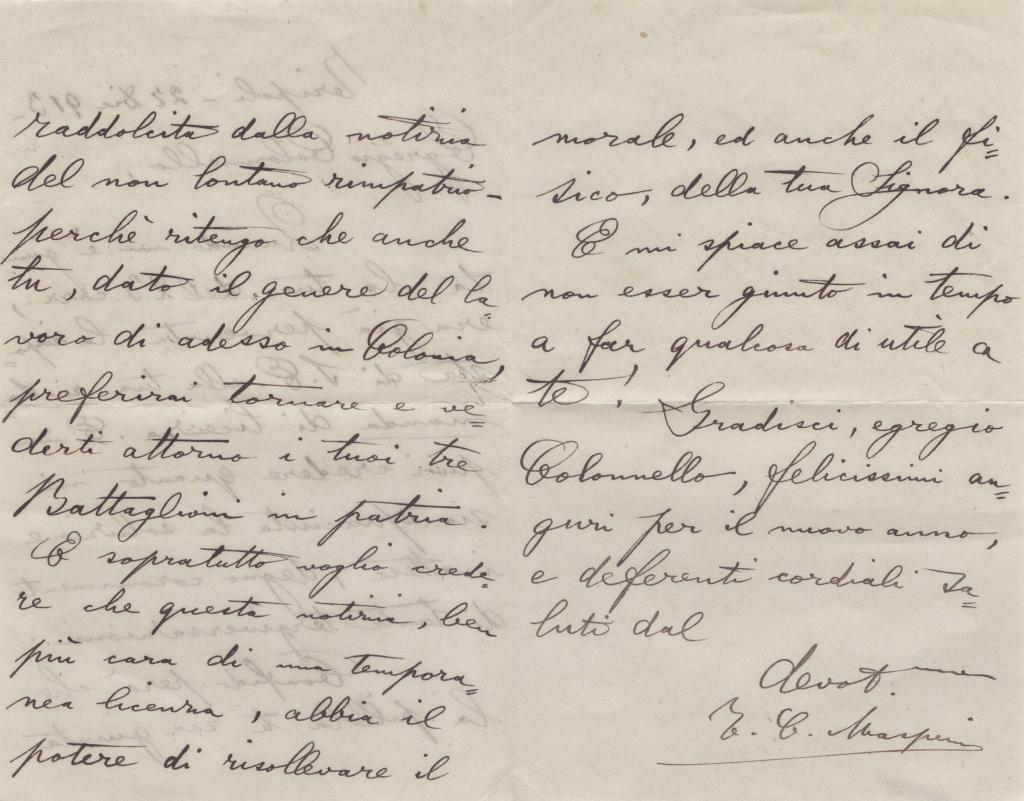 raddolcita dalla notizia
del non lontano rimpatrio -
perchè ritengo che anche
tu, dato il genere del la=
voro di adesso in Colonia,
preferirai tornare e ve=
derti attorno i tuoi tre
Battaglioni in patria.
E sopratutto voglio crede=
re che questa notizia, ben
più cara di una tempora=
nea licenza, abbia il
potere di risollevare il
morale, ed anche il fi=
sico, della tua Signora.
E mi spiace assai di
non esser giunto in tempo
a far qualcosa di utile a
te!
Gradisci, egregio
Colonnello, felicissimi au=
guri per il nuovo anno,
e deferenti cordiali sa=
luti dal
devot.